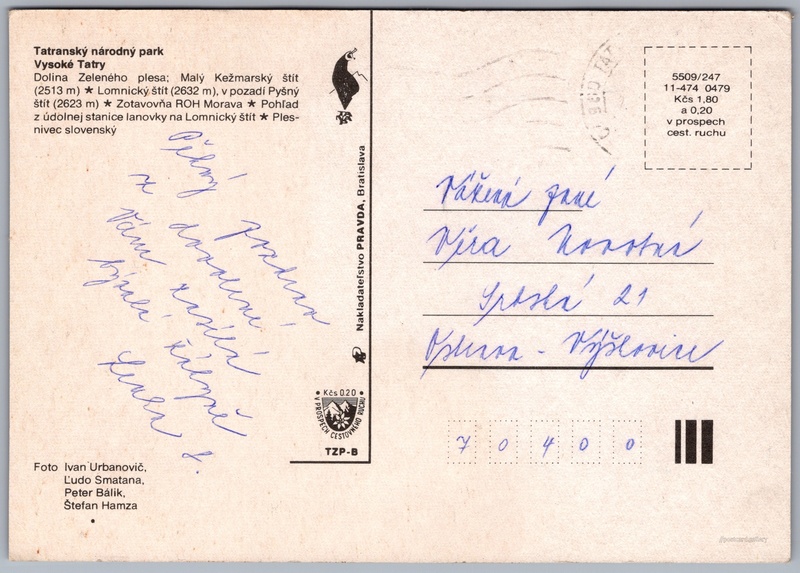 Tatranský národný park
Vysoké Tatry
Dolina Zeleného plesa; Malý Kežmarský štít
(2513 m) ★ Lomnický štít (2632 m), v pozadí Pyšný
štít (2623 m) ★ Zotavovňa ROH Morava ★ Pohľad
z údolnej stanice lanovky na Lomnický štít ★ Ples-
nivec slovenský
Pěkný pozdrav
z dovolené
Vám zasílá
bývalá
Foto Ivan Urbanovič,
Ľudo Smatana,
Peter Bálik,
Štefan Hamza
Nakladateľstvo PRAVDA, Bratislava
Kčs 0.20
V PROSPECH CESTOVNÉHO RUCHU
TZP-B
5509/247
11-474 0479
Kčs 1,80
a 0,20
v prospech
cest. ruchu
Vážená paní
Věra Novotná
Srbská 21
Ostrava - Výškovice
70400